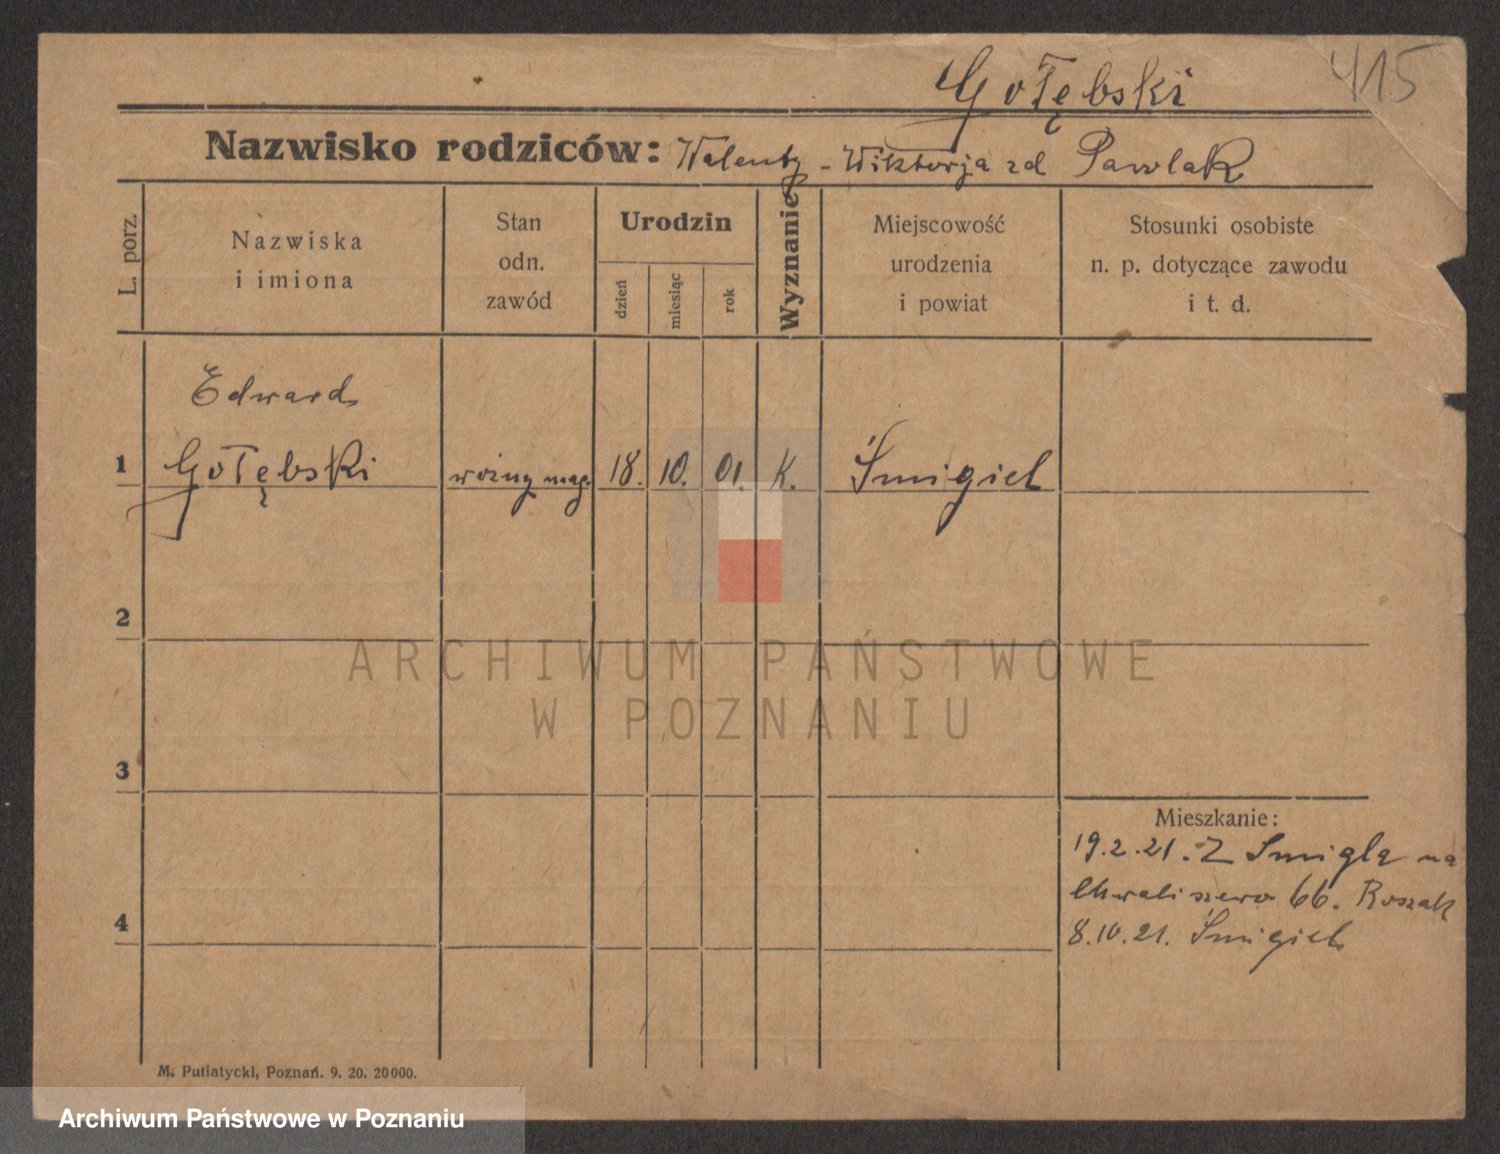 415
Gołębski
Nazwisko rodziców: Walenty - Wiktorja zd Pawlak
L. porz.
Nazwiska
i imiona
Stan
odn.
zawód
Urodzin
dzień
miesiąc
rok
Wyznanie
Miejscowość
urodzenia
i powiat
Stosunki osobiste
n. p. dotyczące zawodu
i t. d.
Edward
1 Gołębski woźny mag. 18. 10. 01. K. Śmigiel
2
ARCHIWUM PAŃSTWOWE
W POZNANIU
3
Mieszkanie:
19.2.21. Z Śmigla na
Chwaliszewo 66. Roszak
4
8.10.21. Śmigiel
M. Putiatycki, Poznań. 9. 20. 20000.
Archiwum Państwowe w Poznaniu